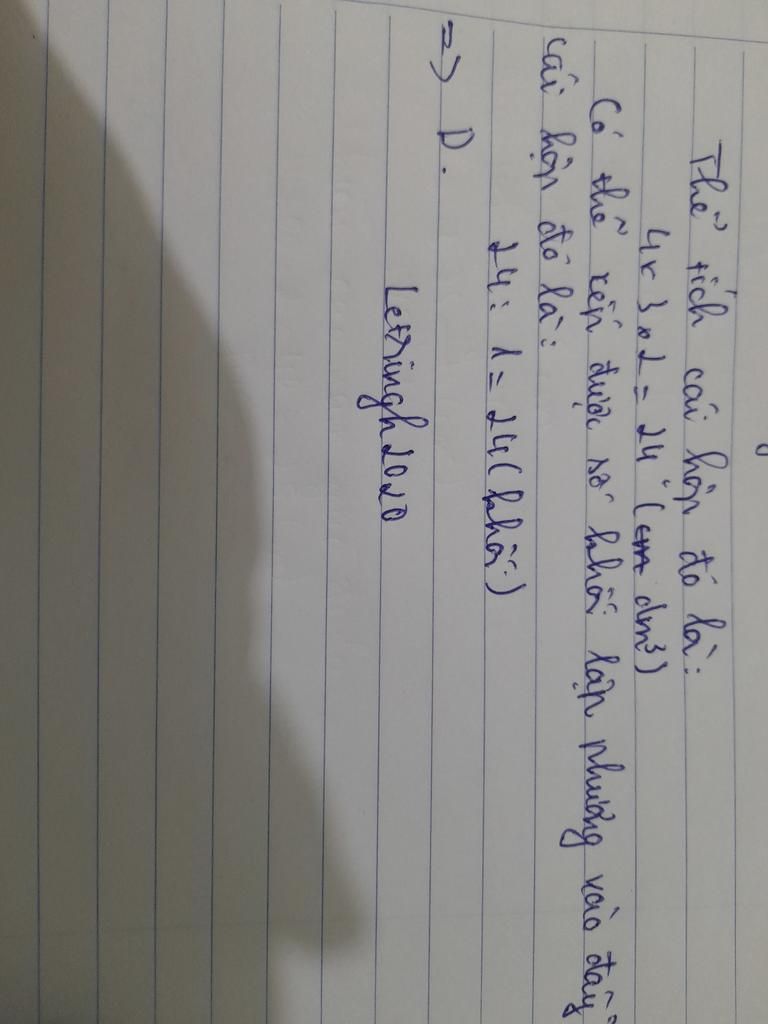 Thể tích cái hộp đó là:
4 x 3 x 2 = 24 (dm³)
Có thể xếp được số khối lập phương vào đầy
cái hộp đó là:
24 : 1 = 24 (khối)
=> D.
Letringh2020